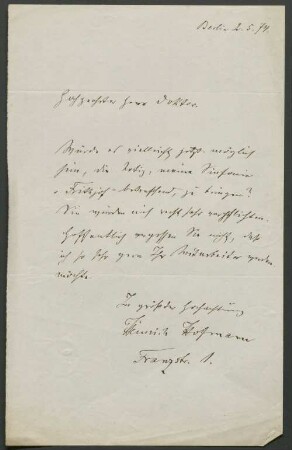 Berlin 2.5.74.
Hochgeehrter Herr Doktor.
Würde es vielleicht jetzt möglich
sein, die Notiz, meine Sinfonie
„Frithjof" betreffend, zu bringen?
Sie würden mich recht sehr verpflichten.
Hoffentlich vergessen Sie nicht, daß
ich so sehr gern Ihr Mitarbeiter werden
möchte.
In größter Hochachtung
Heinrich Hofmann
Franzstr. 1.